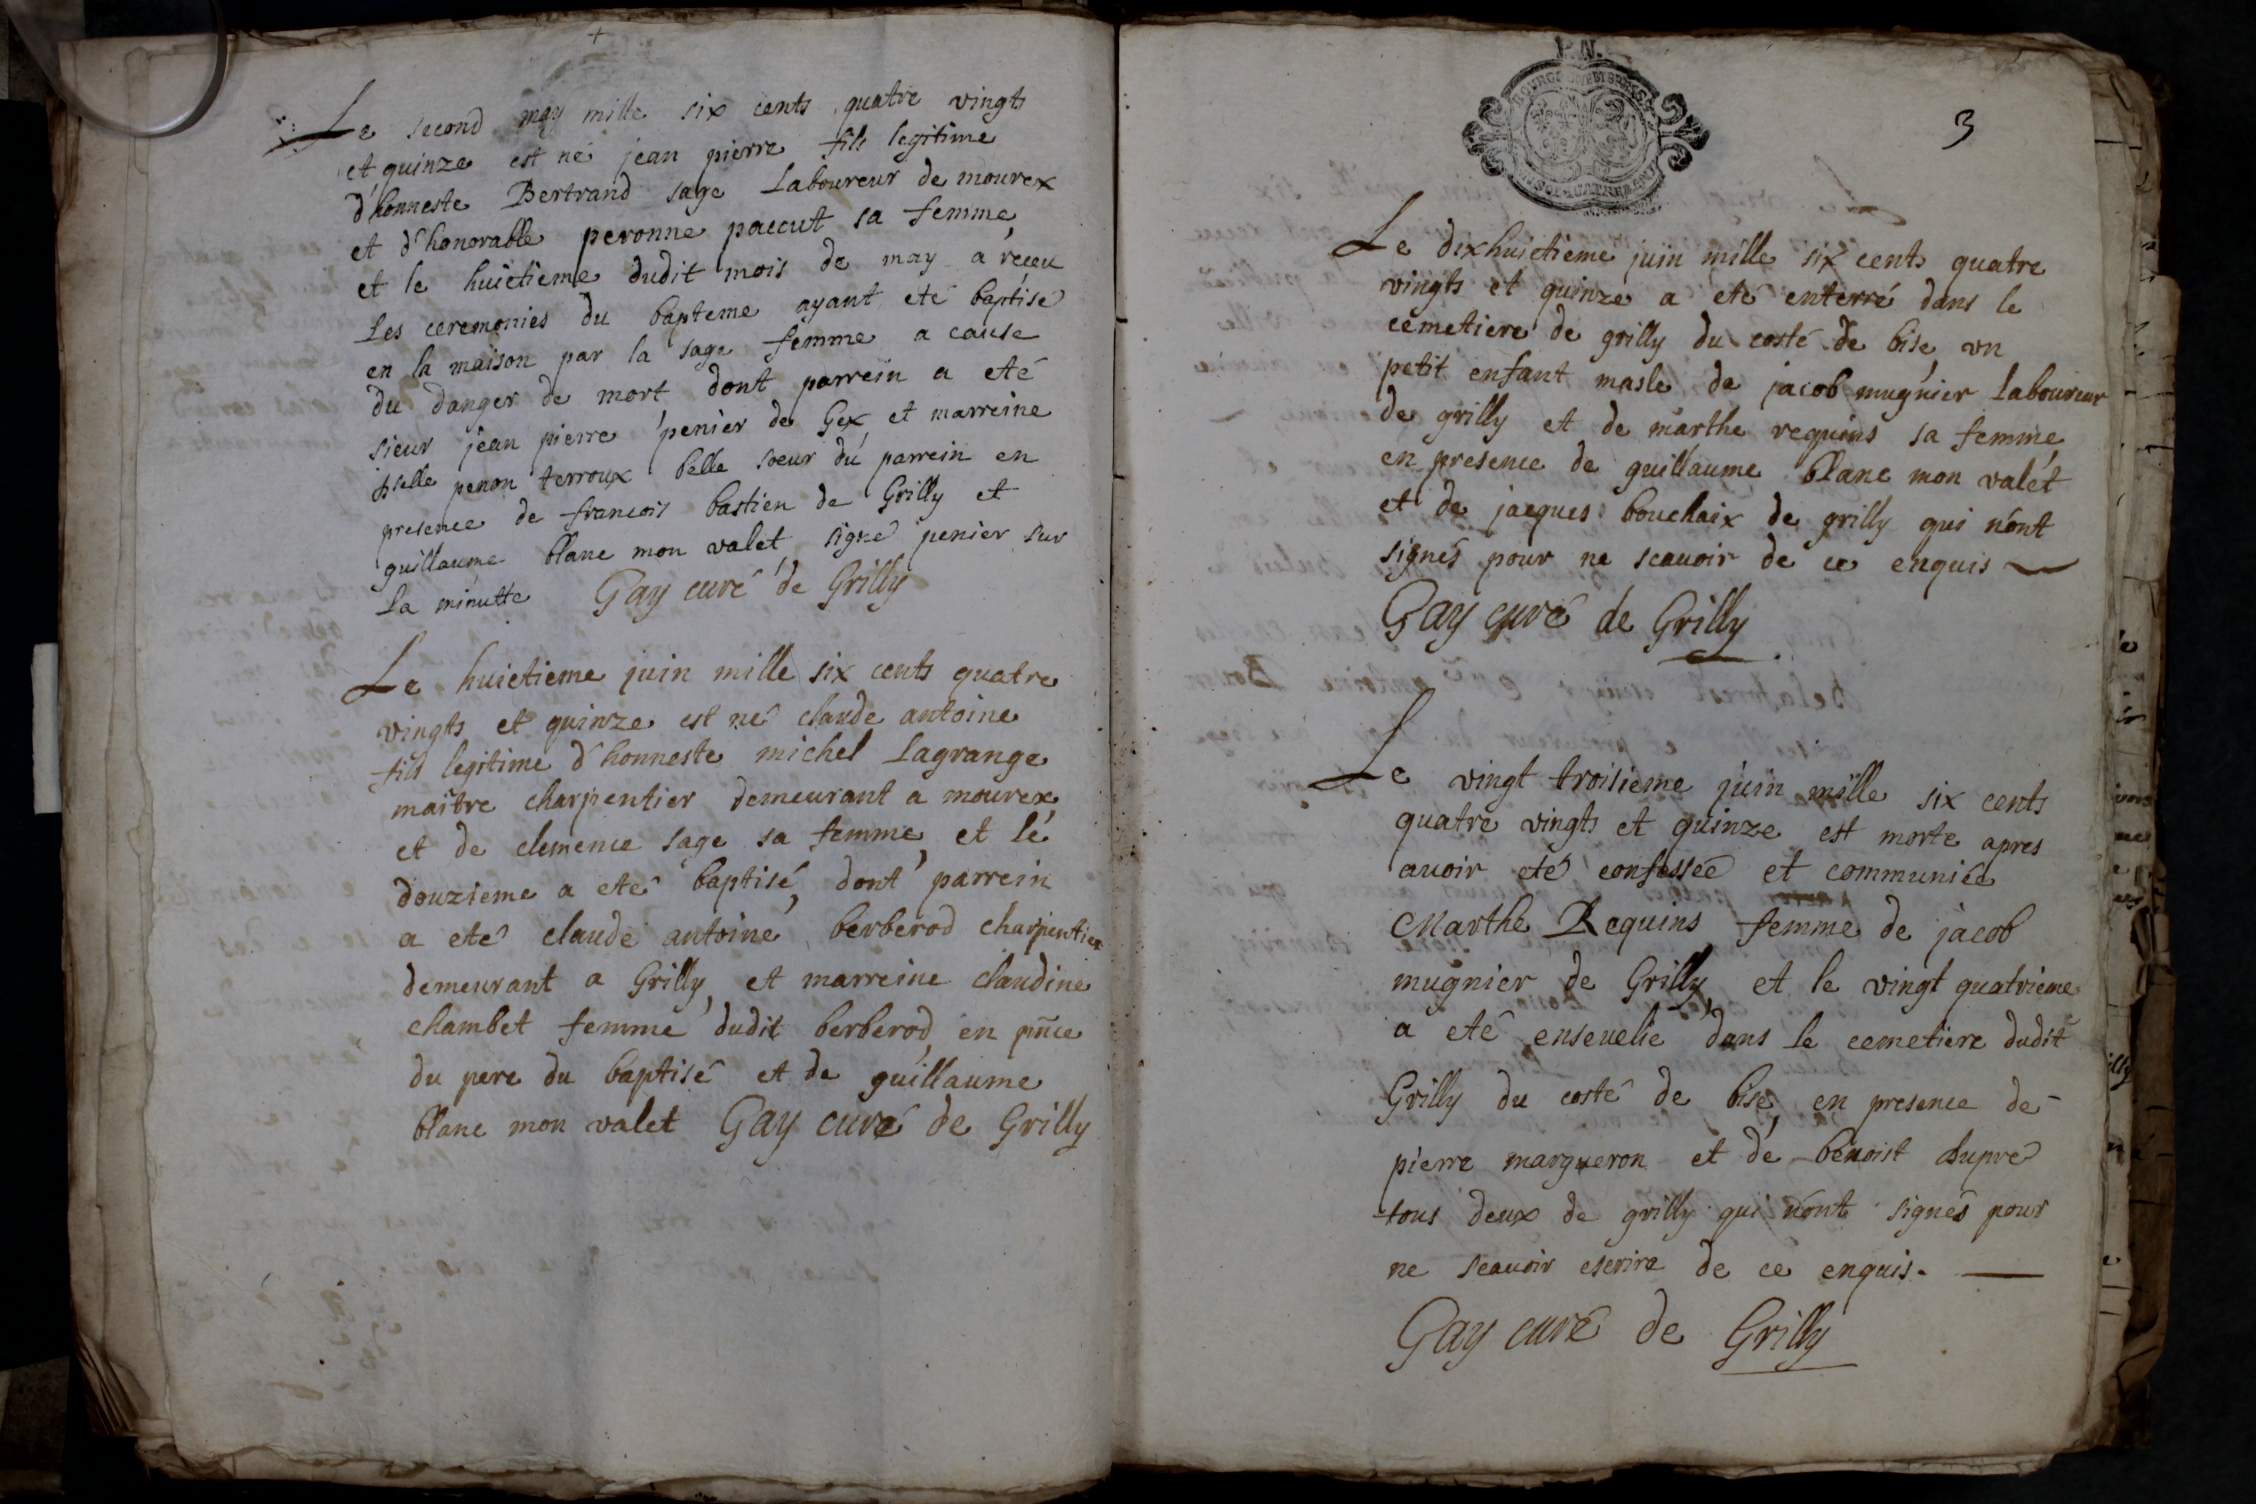 Le second may mille six cents quatre vingts
et quinze est né jean pierre fils legitime
d'honneste Bertrand sage Laboureur de mourex
et d'honorable peronne paccut sa femme,
et le huictieme dudit mois de may a réceu
Les ceremonies du bapteme ayant eté baptisé
en la maison par la sage femme a cause
du danger de mort dont parrein a eté
sieur jean pierre penier de Gex et marreine
penon terroux belle soeur du parrein en
presence de francois bastien de Grilly et
guillaume blanc mon valet signé penier sur
La minutte Gay curé de Grilly
Le huictieme juin mille six cents quatre
vingts et quinze est né claude antoine
fils legitime d'honneste michel Lagrange
maitre charpentier demeurant a mourex
et de clemence sage sa femme, et lé
douzieme a eté baptisé, dont parrein
a eté claude antoine berberod charpentier
demeurant a Grilly, et marreine claudine
chambet femme dudit berberod, en pnce
du pere du baptisé et de guillaume
blanc mon valet Gay curé de Grilly
3
Le dixhuictieme juin mille six cents quatre
vingts et quinze a eté enterré dans le
cemetiere de grilly du costé de bise, un
petit enfant masle de jacob mugnier Laboureur
de grilly et de marthe requins sa femme,
en presence de guillaume blanc mon valét
et de jacques bouchaix de grilly qui n'ont
signés pour ne scauoir de ce enquis
Gay curé de Grilly
Le vingt troisieme juin mille six cents
quatre vingts et quinze est morte apres
auoir eté confessée et communiée
Marthe Requins femme de jacob
mugnier de Grilly, et le vingt quatrieme
a eté enseuelie dans le cemetiere dudit
Grilly du costé de bise, en presence de
pierre margueron et dé benoist dupre
tous deux de grilly qui n'ont signés pour
ne scauoir escrire de ce enquis.
Gay curé de Grilly